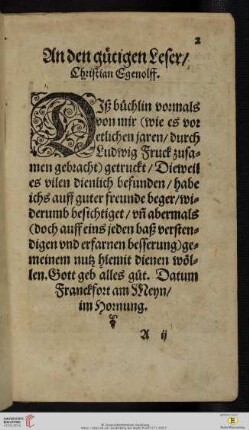 2
An den gütigen Leser/
Christian Egenolff.
DIß büchlin vormals
von mir (wie es vor
etlichen jaren/durch
Ludwig Fruck zusa-
men gebracht) getruckt/ Diewell
es vilen dienlich befunden/ habe
ichs auff guter freunde beger/wi-
derumb besichtiget/ vñ abermals
(doch auff eins jeden baß versten-
digen vnd erfarnen besserung) ge-
meinem nutz hiemit dienen wöl-
len. Gott geb alles gůt. Datum
Franckfort am Meyn/
im Hornung.
A ij